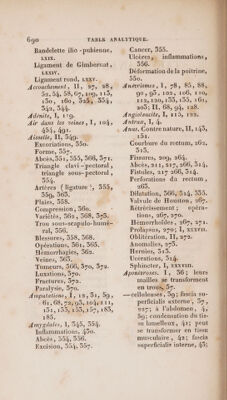 690 TABLE ANALYTIQUE.
Bandelette ilio-pubienne,
LXIX.
Ligament de Gimbernat,
LXXIV.
Ligament rond, LXXV.
Accouchement, II, 27, 28,
52, 54, 58, 67, 109, 113,
130, 160, 325, 354,
342, 344.
Adénite, I, 119.
Air dans les veines, I, 104,
454, 491.
Aisselle, II, 549.
Excoriations, 550.
Forme, 557.
Abcès, 551, 555, 566, 571.
Triangle clavi-pectoral,
triangle sous-pectoral,
554.
Artères (ligature), 555,
559, 563.
Plaies, 558.
Compression, 560.
Variétés, 561, 568, 575.
Trou sous-scapulo-humé-
ral, 556.
Blessures, 558, 568.
Opérations, 561, 565.
Hémorrhagies, 562.
Veines, 563.
Tumeurs, 566, 570, 572.
Luxations, 570.
Fractures, 572.
Paralysie, 570.
Amputations, I, 12, 31, 59,
61, 68, 72, 93, 104, 111,
131, 135, 153, 157, 183,
185.
Amygdales, I, 345, 354.
Inflammations, 450.
Abcès, 354, 556.
Excision, 354, 357.
Cancer, 355.
Ulcères, inflammations,
356.
Déformation de la poitrine,
550.
Anévrismes, I, 78, 85, 88,
92, 95, 102, 106, 110,
112, 120, 133, 155, 161,
203; II, 68, 94, 128.
Angioleucite, I, 115, 122.
Antrax, I, 4.
Anus. Contre nature, II, 143,
151.
Courbure du rectum, 262,
315.
Fissures, 209, 264.
Abcès, 211, 217, 266, 314.
Fistules, 217, 266, 314.
Perforations du rectum,
263.
Dilatation, 266, 314, 335.
Valvule de Houston, 267.
Rétrécissement: opéra-
tions, 267, 270.
Hémorrhoïdes, 267, 272.
Prolapsus, 270; I, XXXVI.
Oblitération, II, 272.
Anomalies, 273.
Hernies, 313.
Ulcérations, 314.
Sphincter, I, XXXVIII.
Aponévroses. I, 36; leurs
mailles se transforment
en trous, 37.
—celluleuses, 39; fascia su-
perficialis externe, 37,
227; à l'abdomen, 4,
39; condensation du tis-
su lamelleux, 41; peut
se transformer en tissu
musculaire, 42; fascia
superficialis interne, 43;